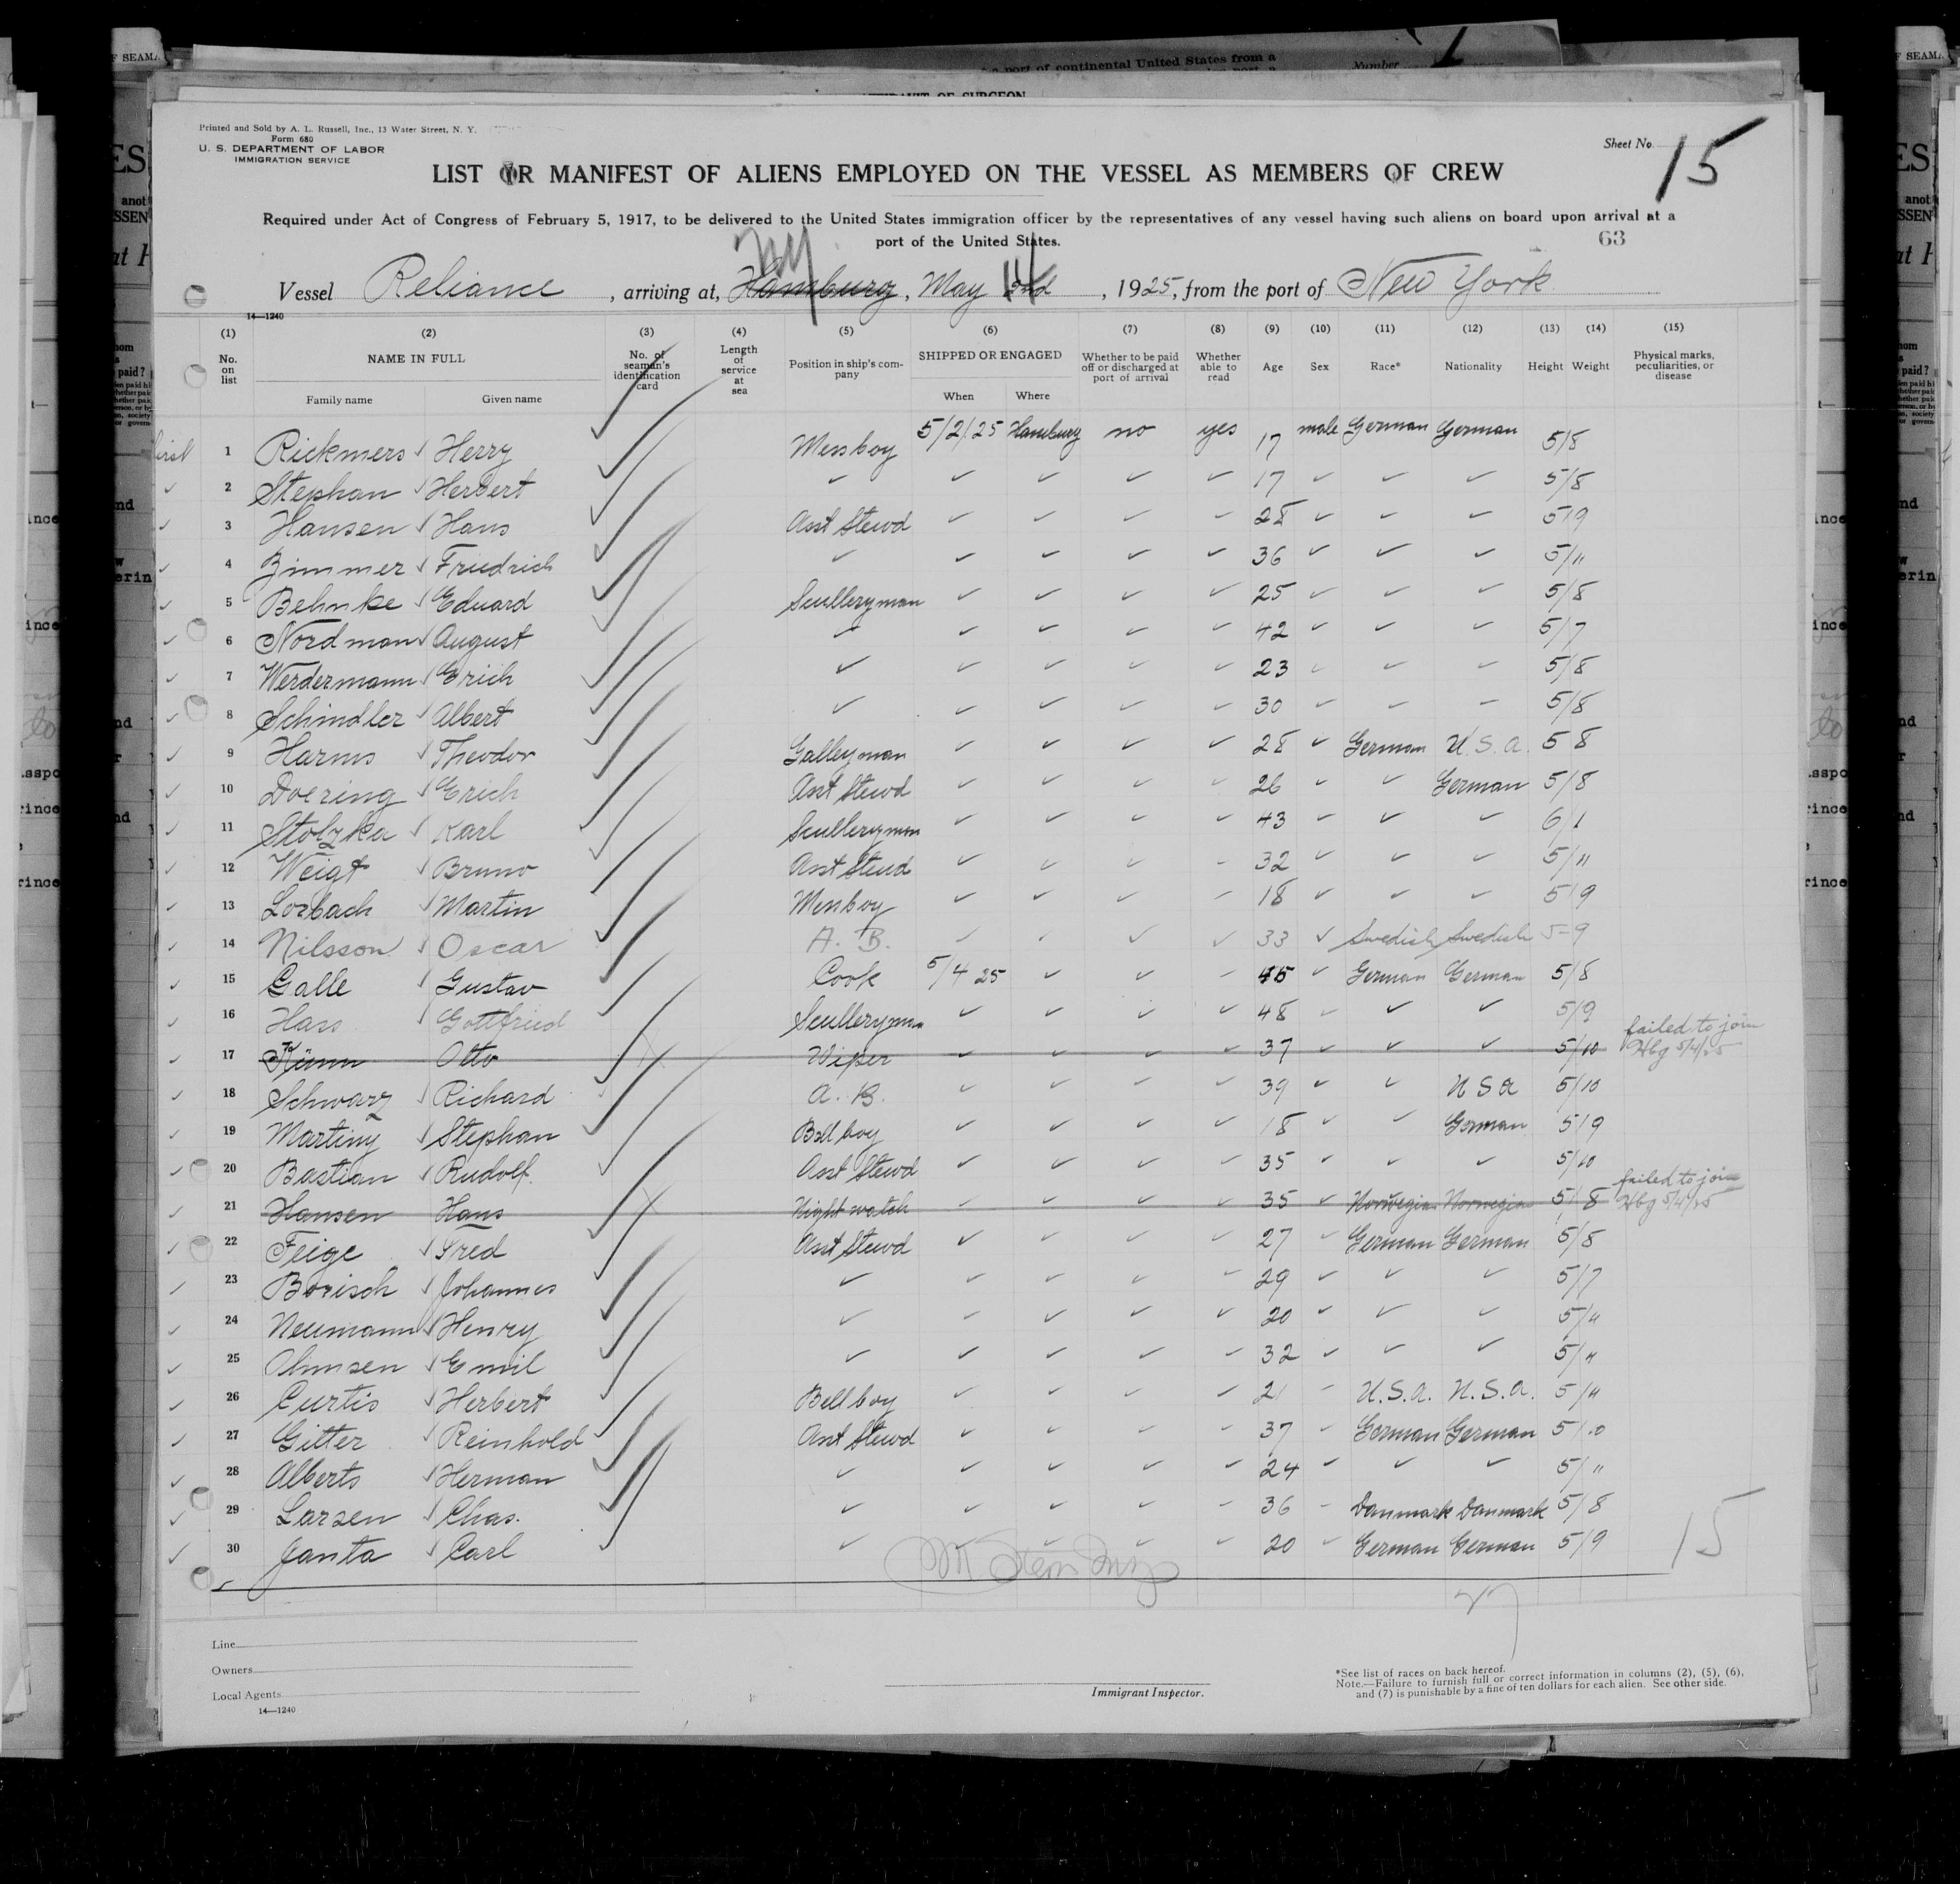 a port of continental United States from a
Number
AFFIDAVIT OF SURGEON
Printed and Sold by A. L. Russell, Inc., 13 Water Street, N. Y.
Form 680
U. S. DEPARTMENT OF LABOR
IMMIGRATION SERVICE
Sheet No. 15
LIST OR MANIFEST OF ALIENS EMPLOYED ON THE VESSEL AS MEMBERS OF CREW
Required under Act of Congress of February 5, 1917, to be delivered to the United States immigration officer by the representatives of any vessel having such aliens on board upon arrival at a
port of the United States.
63
Vessel Reliance, arriving at, Hamburg NY, May 2nd 14, 1925, from the port of New York
14—1240
(1) (2) (3) (4) (5) (6) (7) (8) (9) (10) (11) (12) (13) (14) (15)
No. on list NAME IN FULL Family name Given name No. of seaman's identification card Length of service at sea Position in ship's company SHIPPED OR ENGAGED When Where Whether to be paid off or discharged at port of arrival Whether able to read Age Sex Race* Nationality Height Weight Physical marks, peculiarities, or disease
first 1 Rickmers ✓ Herry ✓ Messboy 5/2/25 Hamburg no yes 17 male German German 5/8
✓ 2 Stephan ✓ Herbert ✓ ✓ ✓ ✓ ✓ ✓ 17 ✓ ✓ ✓ 5/8
✓ 3 Hansen ✓ Hans ✓ Asst Stewd ✓ ✓ ✓ ✓ 28 ✓ ✓ ✓ 5/9
✓ 4 Zimmer ✓ Friedrich ✓ ✓ ✓ ✓ ✓ ✓ 36 ✓ ✓ ✓ 5/11
✓ 5 Behnke ✓ Eduard ✓ Sculleryman ✓ ✓ ✓ ✓ 25 ✓ ✓ ✓ 5/8
✓ 6 Nordman ✓ August ✓ ✓ ✓ ✓ ✓ ✓ 42 ✓ ✓ ✓ 5/7
✓ 7 Werdermann ✓ Erich ✓ ✓ ✓ ✓ ✓ ✓ 23 ✓ ✓ ✓ 5/8
✓ 8 Schindler ✓ Albert ✓ ✓ ✓ ✓ ✓ ✓ 30 ✓ ✓ ✓ 5/8
✓ 9 Harms ✓ Theodor ✓ Galleyman ✓ ✓ ✓ ✓ 28 ✓ German U.S.A. 5 8
✓ 10 Doering ✓ Erich ✓ Asst Stewd ✓ ✓ ✓ ✓ 26 ✓ ✓ German 5/8
✓ 11 Stolzka ✓ Karl ✓ Sculleryman ✓ ✓ ✓ ✓ 43 ✓ ✓ ✓ 6/1
✓ 12 Weigt ✓ Bruno ✓ Asst Stewd ✓ ✓ ✓ ✓ 32 ✓ ✓ ✓ 5/11
✓ 13 Losbach ✓ Martin ✓ Messboy ✓ ✓ ✓ ✓ 18 ✓ ✓ ✓ 5/9
✓ 14 Nilsson ✓ Oscar ✓ A. B. ✓ ✓ ✓ ✓ 33 ✓ Swedish Swedish 5-9
✓ 15 Galle ✓ Gustav ✓ Cook 5/4 25 ✓ ✓ ✓ 45 ✓ German German 5/8
✓ 16 Hass ✓ Gottfried ✓ Sculleryman ✓ ✓ ✓ ✓ 48 ✓ ✓ ✓ 5/9
✓ 17 Otto Wiper ✓ ✓ ✓ ✓ 37 ✓ ✓ ✓ 5/10 failed to join Hbg 5/4/25
✓ 18 Schwarz ✓ Richard ✓ A. B. ✓ ✓ ✓ ✓ 39 ✓ ✓ U S A 5/10
✓ 19 Martiny ✓ Stephan ✓ Bell boy ✓ ✓ ✓ ✓ 18 ✓ ✓ German 5/9
✓ 20 Bastian ✓ Rudolf ✓ Asst Stewd ✓ ✓ ✓ ✓ 35 ✓ ✓ ✓ 5/10
✓ 21 Hansen Hans Night watch ✓ ✓ ✓ ✓ 35 ✓ Norwegian Norwegian 5/8 failed to join Hbg 5/4/25
✓ 22 Feige ✓ Fred ✓ Asst Stewd ✓ ✓ ✓ ✓ 27 ✓ German German 5/8
✓ 23 Borisch ✓ Johannes ✓ ✓ ✓ ✓ ✓ ✓ 29 ✓ ✓ ✓ 5/7
✓ 24 Neumann ✓ Henry ✓ ✓ ✓ ✓ ✓ ✓ 20 ✓ ✓ ✓ 5/11
✓ 25 Ohmsen ✓ Emil ✓ ✓ ✓ ✓ ✓ ✓ 32 ✓ ✓ ✓ 5/11
✓ 26 Curtis ✓ Herbert ✓ Bell boy ✓ ✓ ✓ ✓ 21 ✓ U.S.A. U.S.A. 5/11
✓ 27 Gitter ✓ Reinhold ✓ Asst Stewd ✓ ✓ ✓ ✓ 37 ✓ German German 5/10
✓ 28 Alberts ✓ Herman ✓ ✓ ✓ ✓ ✓ ✓ 24 ✓ ✓ ✓ 5/11
✓ 29 Larsen ✓ Chas. ✓ ✓ ✓ ✓ ✓ ✓ 36 ✓ Danmark Danmark 5/8
✓ 30 Janta ✓ Carl ✓ ✓ ✓ ✓ ✓ ✓ 20 ✓ German German 5/9
15
Line
Owners
Local Agents
14—1240
Immigrant Inspector.
*See list of races on back hereof.
Note.—Failure to furnish full or correct information in columns (2), (5), (6),
and (7) is punishable by a fine of ten dollars for each alien. See other side.